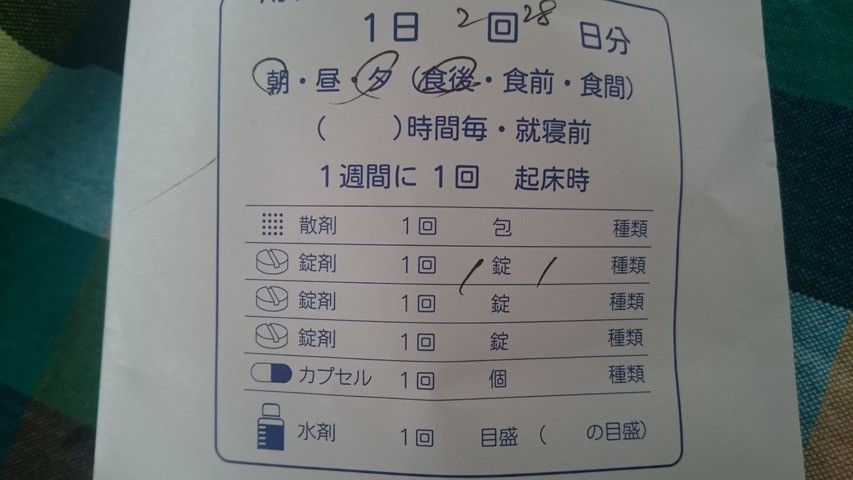 1日 2回 28日分
朝・昼・夕(食後・食前・食間)
( )時間毎・就寝前
1週間に 1回 起床時
散剤 1回 包 種類
錠剤 1回 1 錠 1 種類
錠剤 1回 錠 種類
錠剤 1回 錠 種類
カプセル 1回 個 種類
水剤 1回 目盛 ( の目盛)